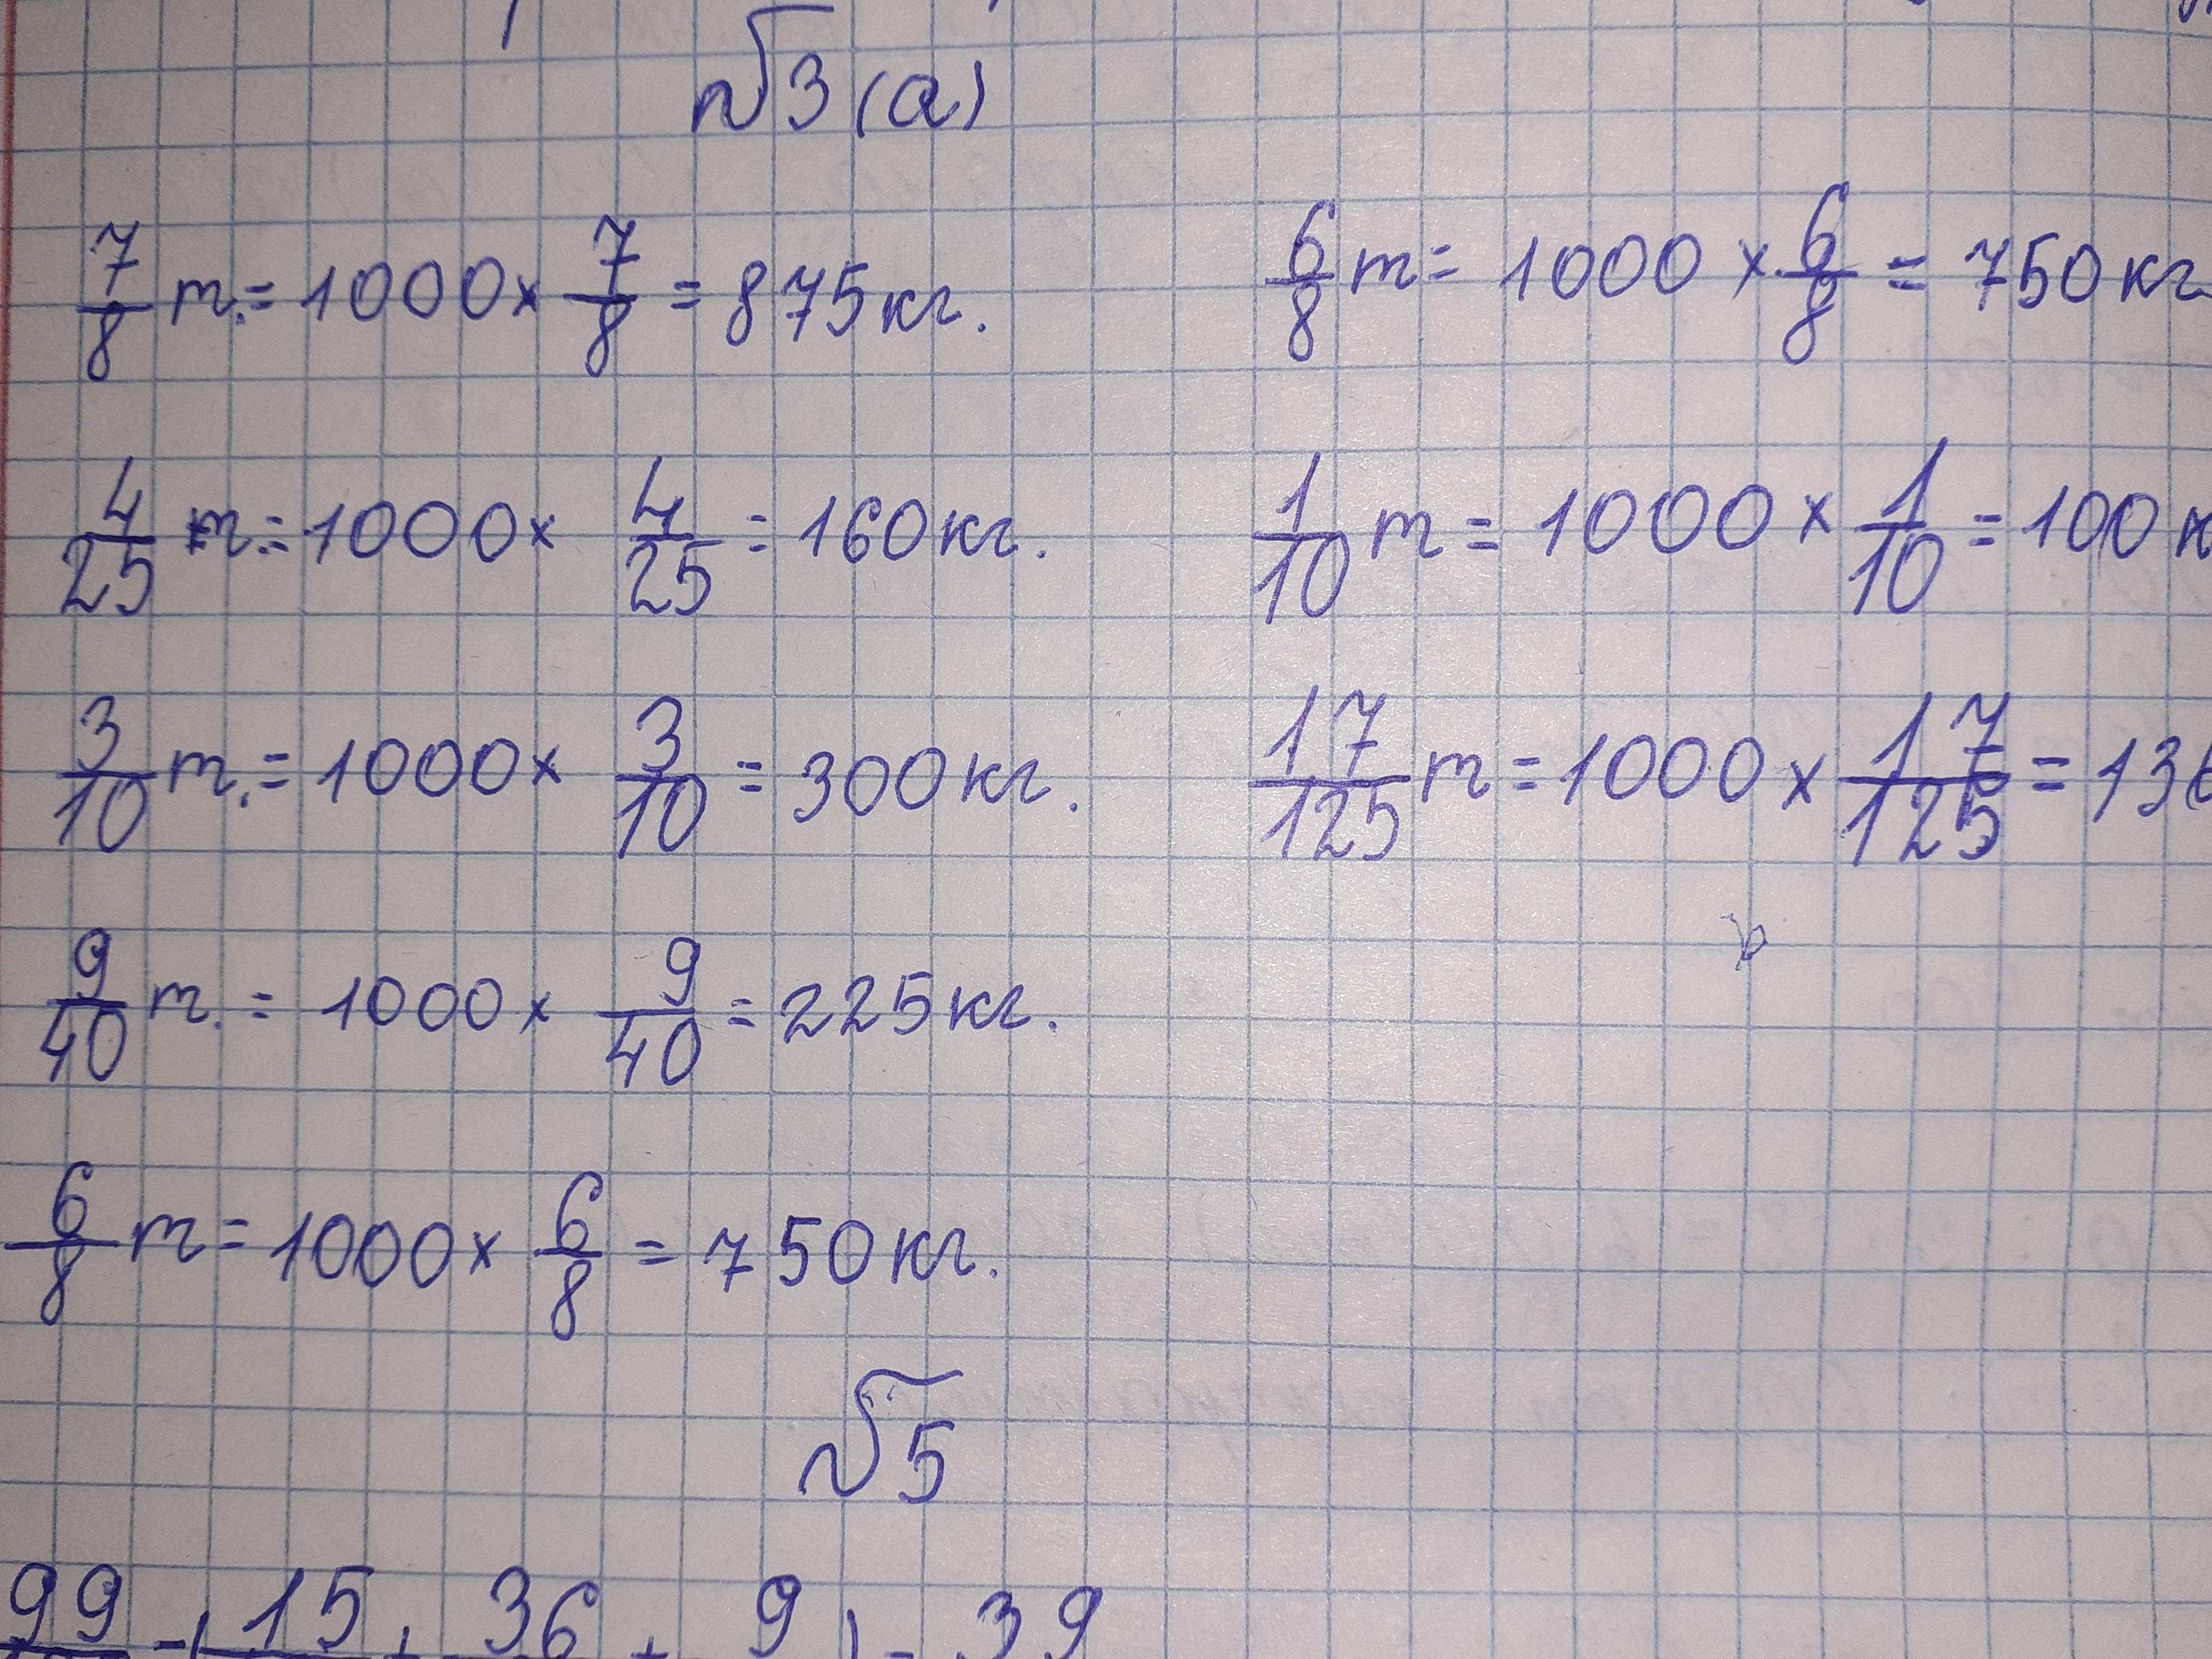 №3(а)
7/8 т. = 1000 × 7/8 = 875 кг.
4/25 т. = 1000 × 4/25 = 160 кг.
3/10 т. = 1000 × 3/10 = 300 кг.
9/40 т. = 1000 × 9/40 = 225 кг.
6/8 т = 1000 × 6/8 = 750 кг.
6/8 т = 1000 × 6/8 = 750 кг
1/10 т = 1000 × 1/10 = 100 к
17/125 т = 1000 × 17/125 = 136
№5
99 - (15 + 36 + 9) = 39